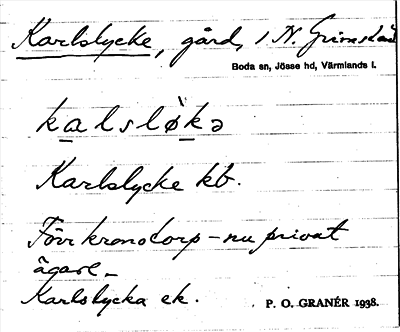 Karlslycke, gård, i N. Grinsdal
Boda sn, Jösse hd, Värmlands l.
kalslø̀kə
Karlslycke kb.
Förr kronotorp - nu privat
ägare -
Karlslycka ek.
P. O. GRANÉR 1938.